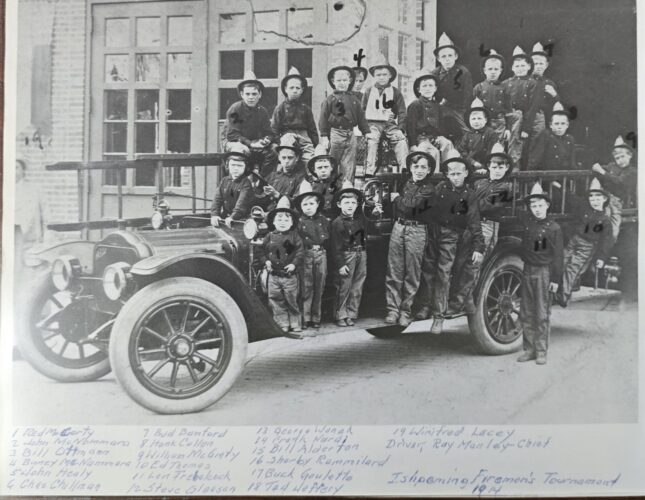 1 Red McGerty
2 John McNommara
3 Bill Ottmann
4 Barney McNonnmara
5 John Healy
6 Ches Chillman
7 Bud Bamford
8 Hank Cullen
9 William McGrety
10 Ed Thomas
11 Len Trebelcock
12 Steve Gleason
13 George Wanek
14 Frank Nardi
15 Bill Alderton
16 Shorby Rummilard
17 Buck Goulette
18 Tod Heffery
19 Winifred Lacey
Driver, Ray Manley-Chief
Ishpeming Firemen's Tournament